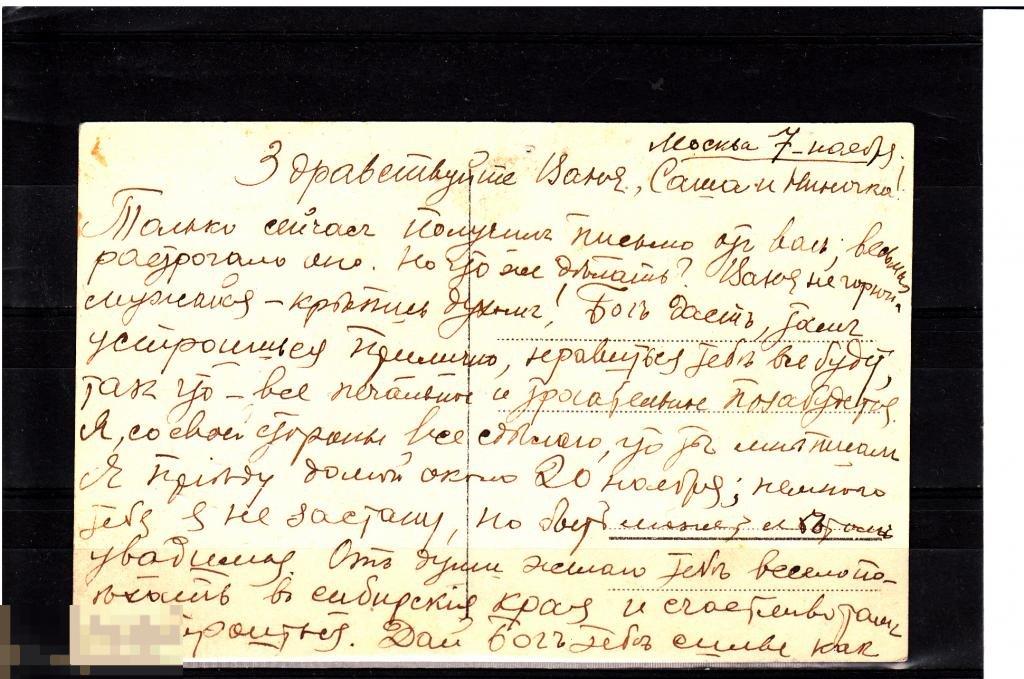 Москва 7 ноября.
Здравствуйте Ваня, Саша и Ниночка!
Только сейчасъ получилъ письмо отъ васъ; весьма
растрогало оно. Но что же дѣлать? Ваня не горюй -
мужайся - крѣпись духомъ! Богъ дастъ, тамъ
устроишься прилично, нравиться тебѣ все будетъ,
такъ что - все печальное и трогательное позабудется.
Я, со своей стороны все сдѣлаю, что ты мнѣ писалъ
Я пріѣду домой около 20 ноября; немного
тебя я не застану, но быть можетъ и
увидимся. Отъ души желаю тебѣ весело по-
ѣхать въ сибирскія края и счастливо тамъ
. Дай Богъ тебѣ силы как